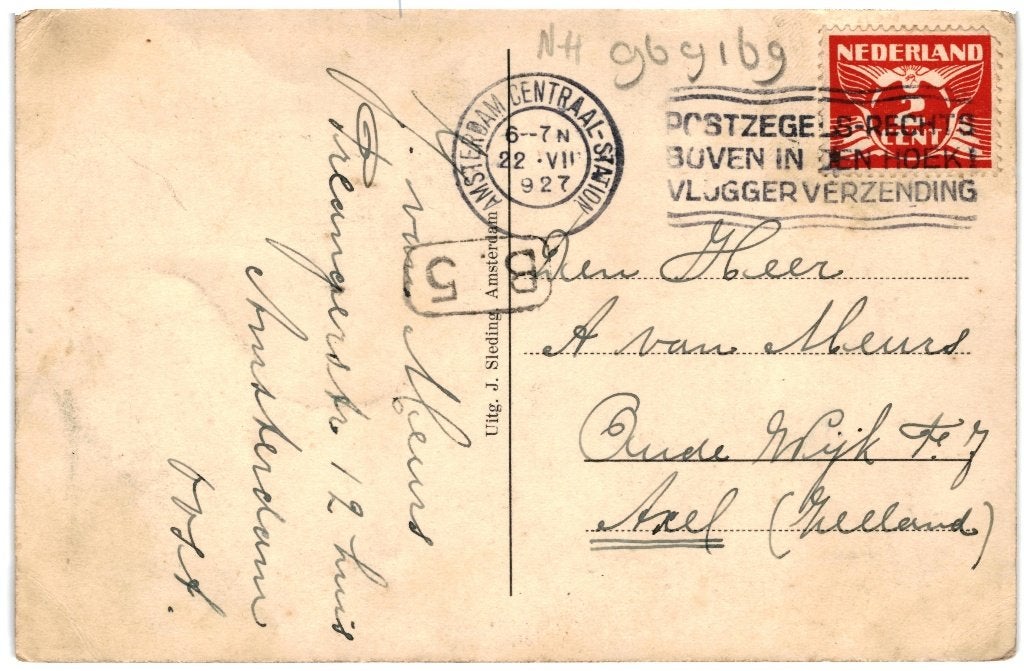 NH 9b9169
NEDERLAND
2
CENT
AMSTERDAM CENTRAAL-STATION
6--7N
22 VII
927
POSTZEGELS-RECHTS
BOVEN IN DEN HOEK!
VLUGGER VERZENDING
B
5
Den Heer
A van Meurs
Oude Wijk F. 7
Axel (Zeeland)
Uitg. J. Sleding, Amsterdam
J. van Meurs
12 huis
Amsterdam
Oost.